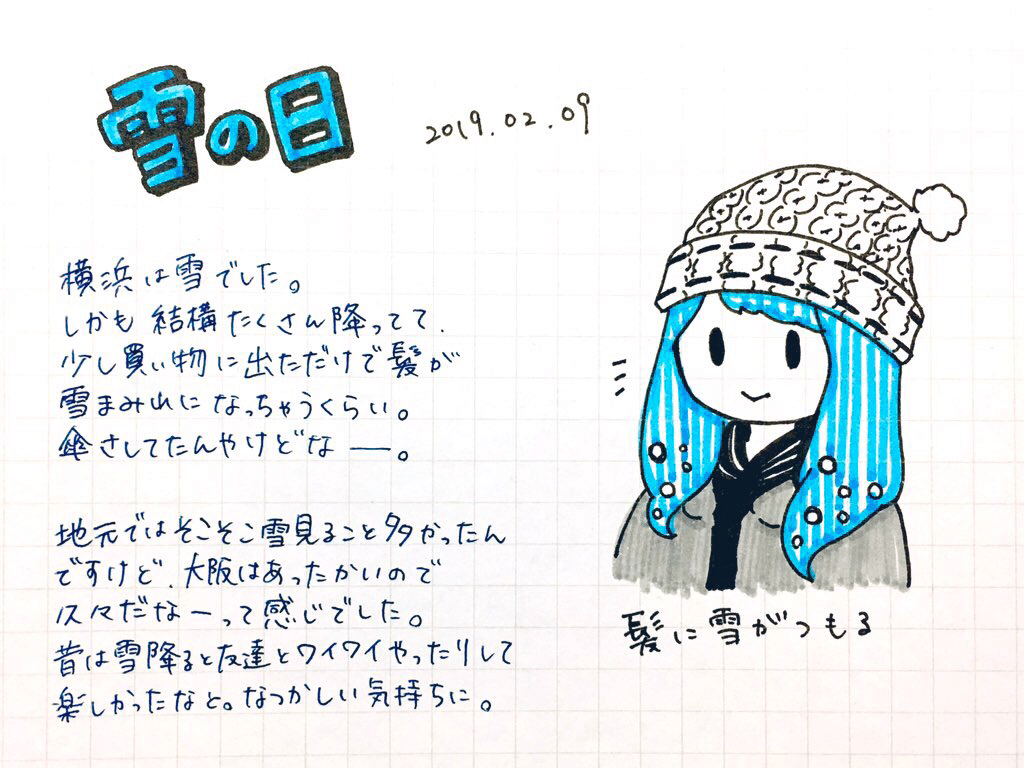 雪の日
2019.02.09
横浜は雪でした。
しかも結構たくさん降ってて、
少し買い物に出ただけで髪が
雪まみれになっちゃうくらい。
傘さしてたんやけどなー。
地元ではそこそこ雪見ること多かったん
ですけど、大阪はあったかいので
久々だなーって感じでした。
昔は雪降ると友達とワイワイやったりして
楽しかったなと。なつかしい気持ちに。
髪に雪がつもる